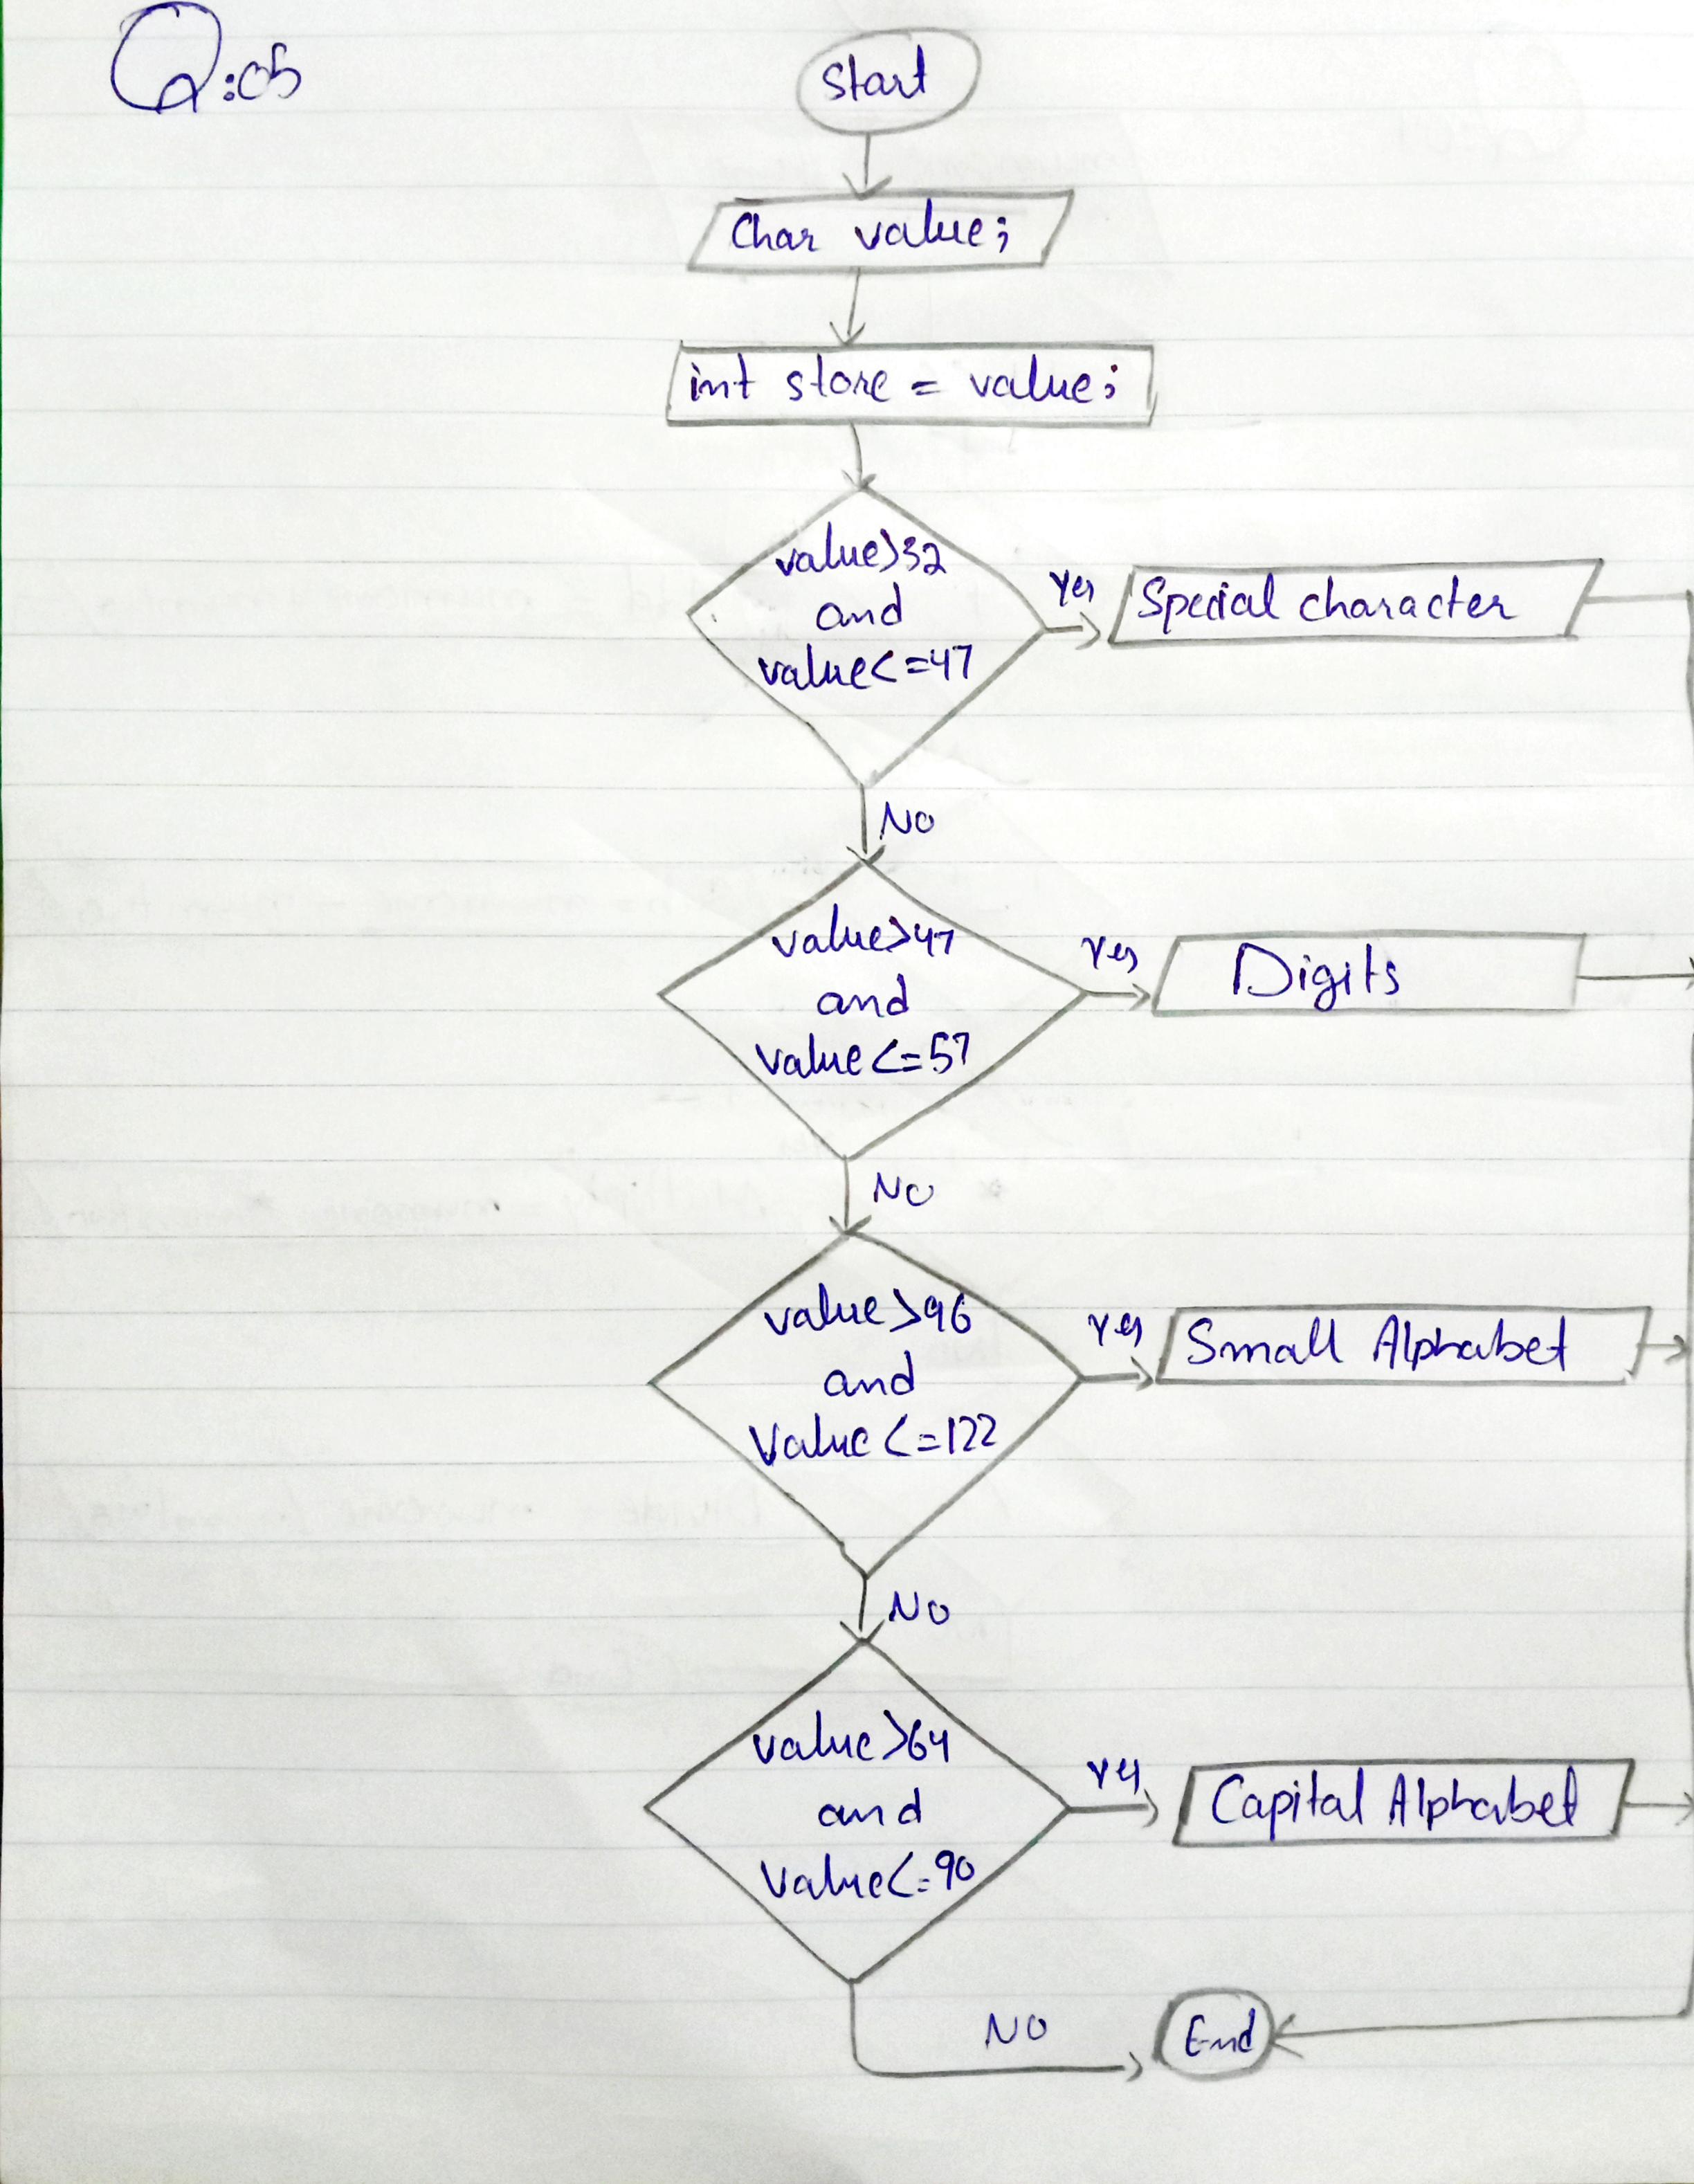 Q:05
Start
Char value;
int store = value;
value>32
and
value<=47
Yes
Special character
No
value>47
and
value<=57
Yes
Digits
No
value>96
and
Value<=122
Yes
Small Alphabet
No
value>64
and
Value<=90
Yes
Capital Alphabet
NO
End